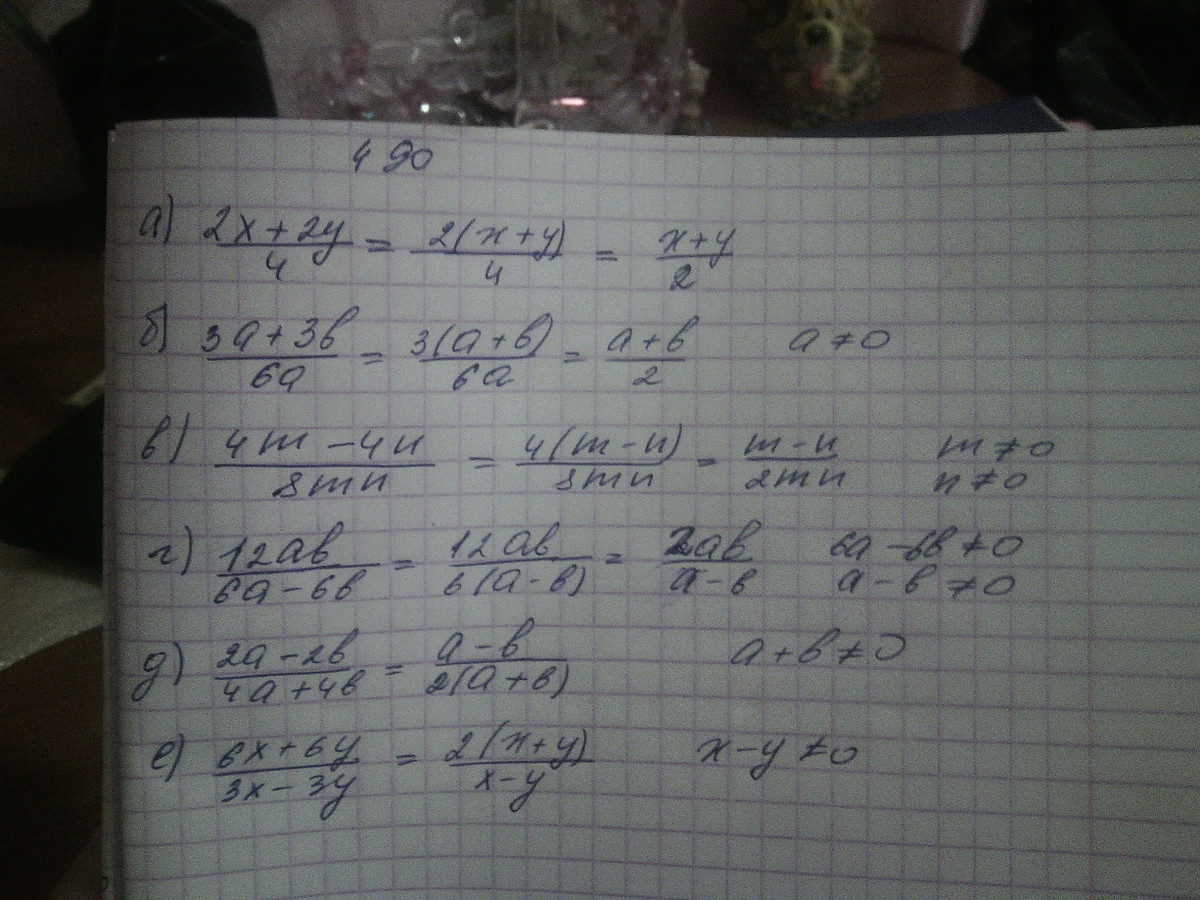 490
а) (2x + 2y)/4 = 2(x + y)/4 = (x + y)/2
б) (3a + 3b)/6a = 3(a + b)/6a = (a + b)/2 a ≠ 0
в) (4m - 4n)/8mn = 4(m - n)/8mn = (m - n)/2mn m ≠ 0 n ≠ 0
г) 12ab/(6a - 6b) = 12ab/6(a - b) = 2ab/(a - b) 6a - 6b ≠ 0 a - b ≠ 0
д) (2a - 2b)/(4a + 4b) = (a - b)/2(a + b) a + b ≠ 0
е) (6x + 6y)/(3x - 3y) = 2(x + y)/(x - y) x - y ≠ 0